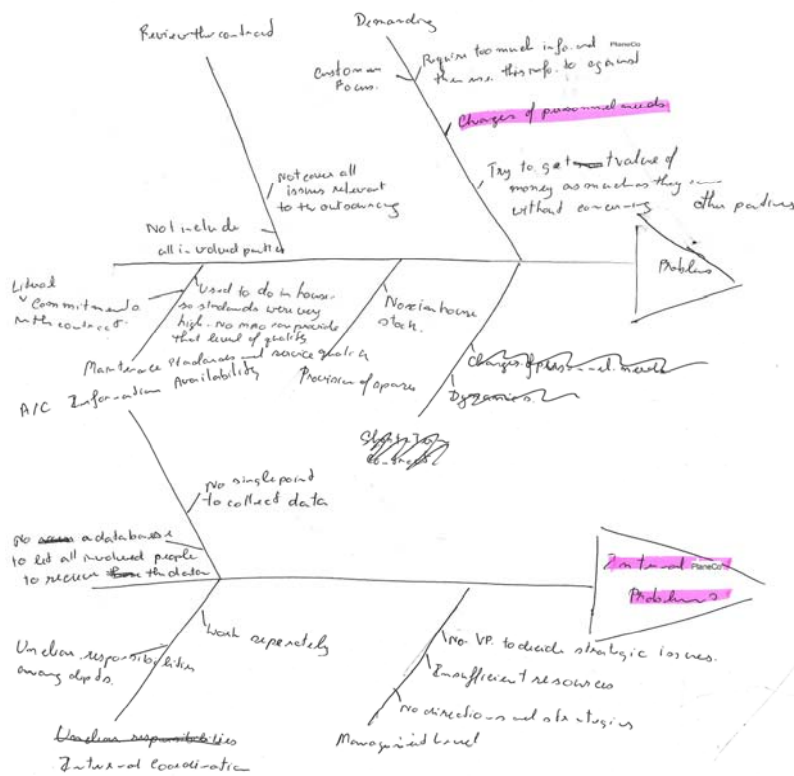 Review the contract
Demanding
Customer
Focus.
Require too much info. and PlaneCo
then use this info. to against
Changes of personnel needs
Try to get value of
money as much as they
without concerning other parties
Not cover all
issues relevant
to the outsourcing
Not include
all involved parties
Problems
Commitment
with contract.
Used to do in house
so standards were very
high. No MRO can provide
that level of quality
Maintenance standards and service quality
No in house
stock.
Provision of spares
Changes of personnel needs
Dynamics.
A/C Information Availability
No single point
to collect data
No a database
to let all involved people
to receive the data
Internal PlaneCo
Problems
Work seperately
Unclear responsibilities
among depts.
Unclear responsibilities
Internal Coordination
No VP. to decide strategic issues.
Insufficient resources
No directions and strategies
Management Level